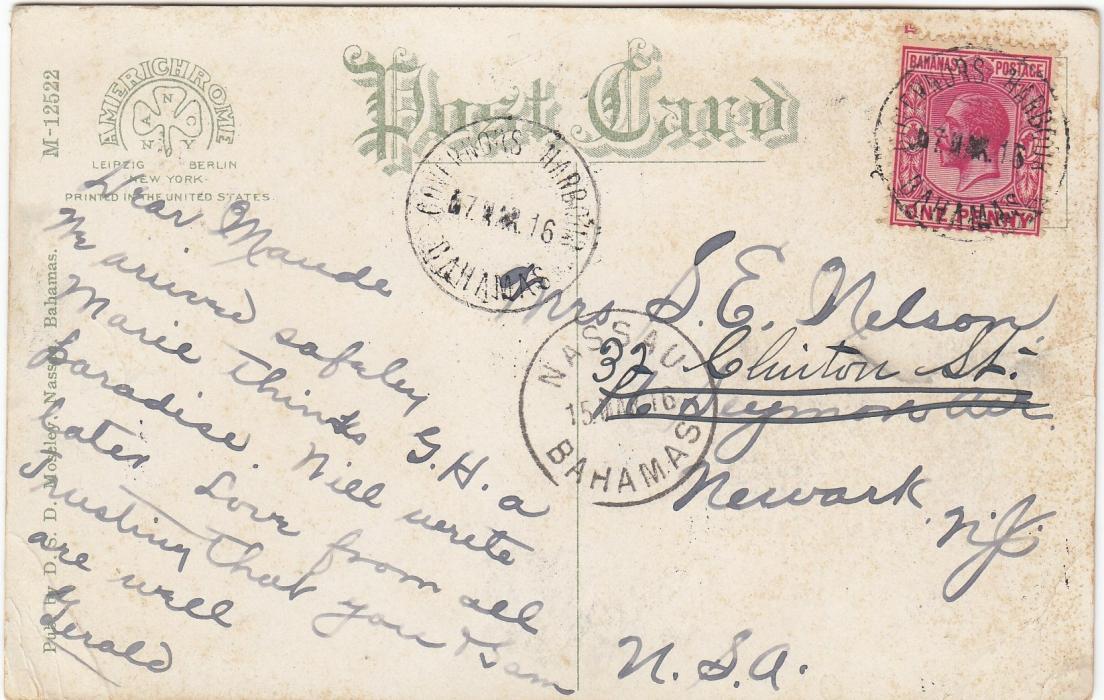 M-12522
AMERICHROME
ANNCO NY
LEIPZIG BERLIN
NEW YORK-
PRINTED IN THE UNITED STATES.
Post Card
Pub. by D. S. D. Moseley. Nassau, Bahamas.
BAHAMAS POSTAGE
ONE PENNY
GOVERNORS HARBOUR
07 MAR. 16
BAHAMAS
GOVERNORS HARBOUR
07 MAR. 16
BAHAMAS
NASSAU
15 MAR 16
BAHAMAS
Dear Maude
We arrived safely
Marie thinks G.H. a
paradise. Will write
later Love from all
Trusting that you & Sam
are well
Gerald
Mrs S. E. Nelson
32 Clinton St.
Seymour Ave.
Newark N.J.
U.S.A.